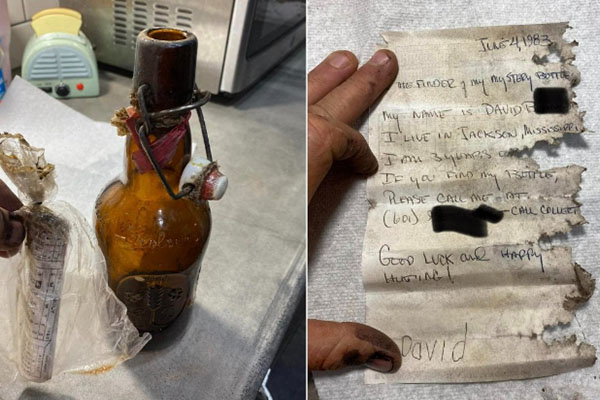 JUNE 4, 1983
THE FINDER of my MYSTERY BOTTLE
MY NAME IS DAVID
I LIVE IN JACKSON, MISSISSIPPI
I AM 3 YEARS O
IF YOU FIND MY BOTTLE,
PLEASE CALL ME AT
(601) - CALL COLLECT
GOOD LUCK and HAPPY
HUNTING!
David